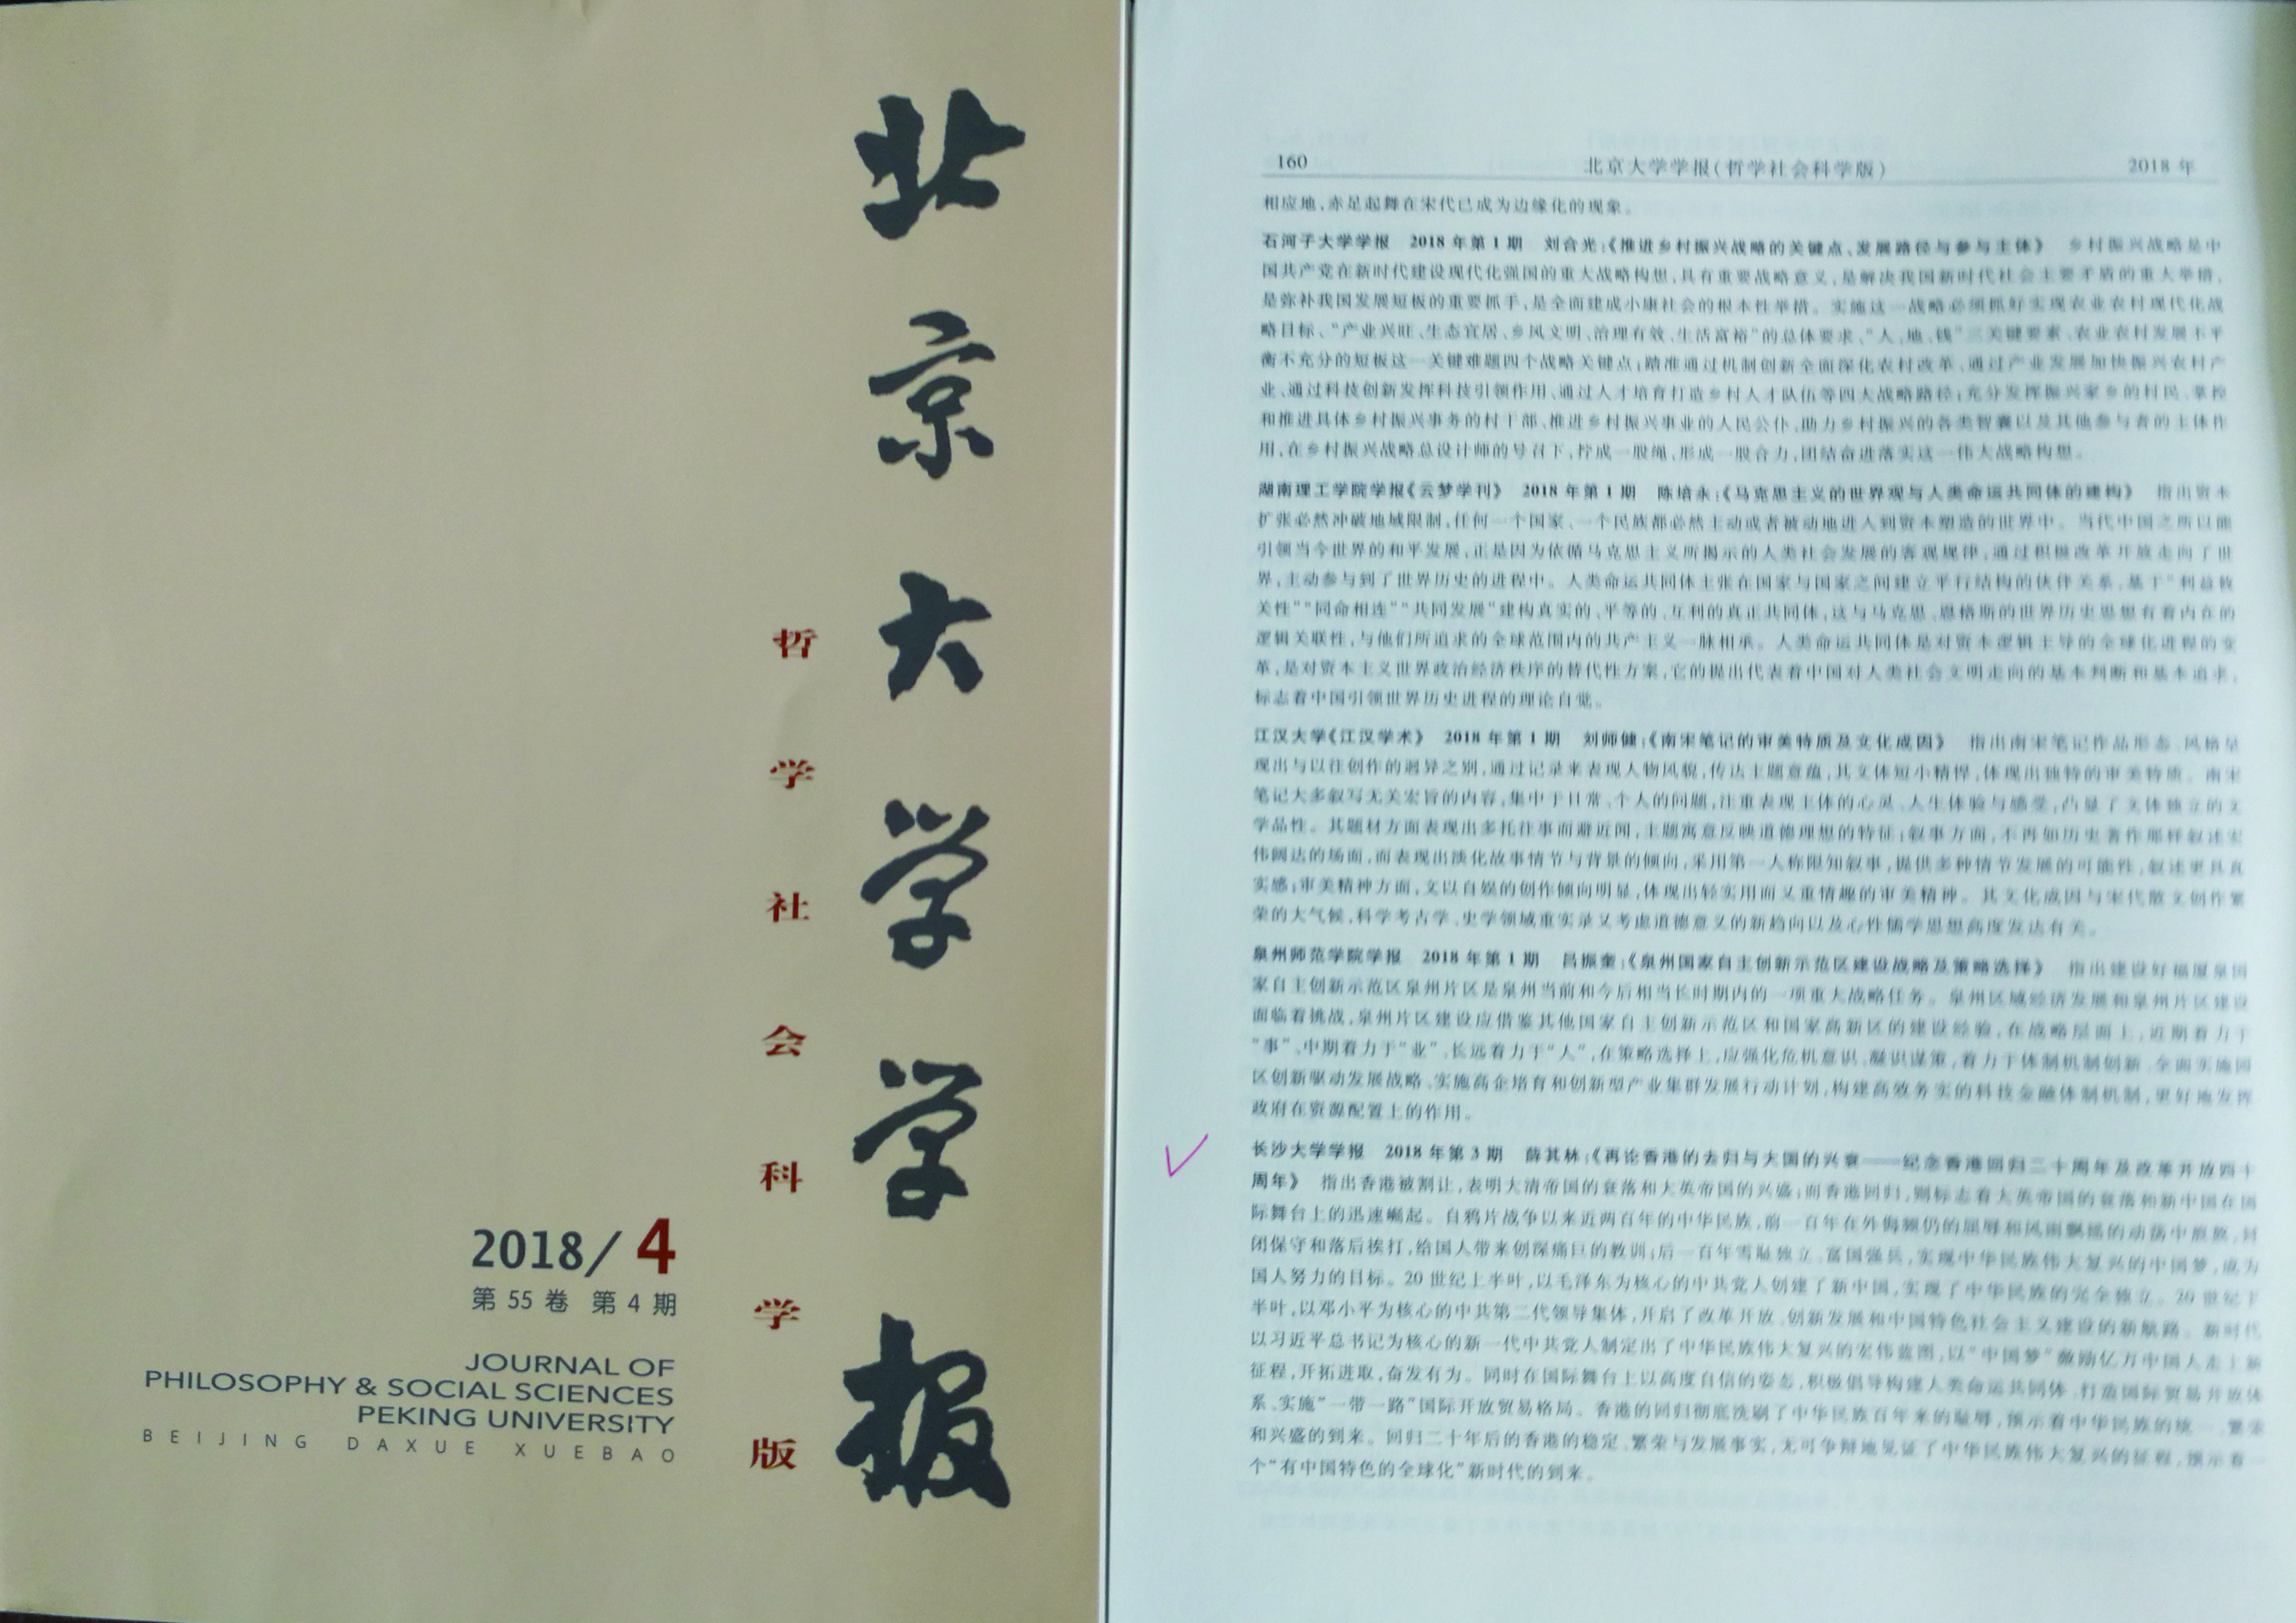 北京大学学报
哲学社会科学版
2018/4
第 55 卷 第 4 期
JOURNAL OF
PHILOSOPHY & SOCIAL SCIENCES
PEKING UNIVERSITY
BEIJING DAXUE XUEBAO
160 北京大学学报(哲学社会科学版) 2018 年
相应地,赤足起舞在宋代已成为边缘化的现象。
石河子大学学报 2018 年第 1 期 刘合光:《推进乡村振兴战略的关键点、发展路径与参与主体》 乡村振兴战略是中
国共产党在新时代建设现代化强国的重大战略构想,具有重要战略意义,是解决我国新时代社会主要矛盾的重大举措,
是弥补我国发展短板的重要抓手,是全面建成小康社会的根本性举措。实施这一战略必须抓好实现农业农村现代化战
略目标、“产业兴旺、生态宜居、乡风文明、治理有效、生活富裕”的总体要求、“人、地、钱”三关键要素、农业农村发展不平
衡不充分的短板这一关键难题四个战略关键点;踏准通过机制创新全面深化农村改革、通过产业发展加快振兴农村产
业、通过科技创新发挥科技引领作用、通过人才培育打造乡村人才队伍等四大战略路径;充分发挥振兴家乡的村民、掌控
和推进具体乡村振兴事务的村干部、推进乡村振兴事业的人民公仆、助力乡村振兴的各类智囊以及其他参与者的主体作
用,在乡村振兴战略总设计师的号召下,拧成一股绳,形成一股合力,团结奋进落实这一伟大战略构想。
湖南理工学院学报《云梦学刊》 2018 年第 1 期 陈培永:《马克思主义的世界观与人类命运共同体的建构》 指出资本
扩张必然冲破地域限制,任何一个国家、一个民族都必然主动或者被动地进入到资本塑造的世界中。当代中国之所以能
引领当今世界的和平发展,正是因为依循马克思主义所揭示的人类社会发展的客观规律,通过积极改革开放走向了世
界,主动参与到了世界历史的进程中。人类命运共同体主张在国家与国家之间建立平行结构的伙伴关系,基于“利益攸
关性”“同命相连”“共同发展”建构真实的、平等的、互利的真正共同体,这与马克思、恩格斯的世界历史思想有着内在的
逻辑关联性,与他们所追求的全球范围内的共产主义一脉相承。人类命运共同体是对资本逻辑主导的全球化进程的变
革,是对资本主义世界政治经济秩序的替代性方案,它的提出代表着中国对人类社会文明走向的基本判断和基本追求,
标志着中国引领世界历史进程的理论自觉。
江汉大学《江汉学术》 2018 年第 1 期 刘师健:《南宋笔记的审美特质及文化成因》 指出南宋笔记作品形态、风格呈
现出与以往创作的迥异之别,通过记录来表现人物风貌,传达主题意蕴,其文体短小精悍,体现出独特的审美特质。南宋
笔记大多叙写无关宏旨的内容,集中于日常、个人的问题,注重表现主体的心灵、人生体验与感受,凸显了文体独立的文
学品性。其题材方面表现出多托往事而避近闻,主题寓意反映道德理想的特征;叙事方面,不再如历史著作那样叙述宏
伟阔达的场面,而表现出淡化故事情节与背景的倾向,采用第一人称限知叙事,提供多种情节发展的可能性,叙述更具真
实感;审美精神方面,文以自娱的创作倾向明显,体现出轻实用而又重情趣的审美精神。其文化成因与宋代散文创作繁
荣的大气候,科学考古学、史学领域重实录又考虑道德意义的新趋向以及心性儒学思想高度发达有关。
泉州师范学院学报 2018 年第 1 期 吕振奎:《泉州国家自主创新示范区建设战略及策略选择》 指出建设好福厦泉国
家自主创新示范区泉州片区是泉州当前和今后相当长时期内的一项重大战略任务。泉州区域经济发展和泉州片区建设
面临着挑战,泉州片区建设应借鉴其他国家自主创新示范区和国家高新区的建设经验,在战略层面上,近期着力于
“事”、中期着力于“业”、长远着力于“人”,在策略选择上,应强化危机意识、凝识谋策,着力于体制机制创新、全面实施园
区创新驱动发展战略、实施高企培育和创新型产业集群发展行动计划,构建高效务实的科技金融体制机制,更好地发挥
政府在资源配置上的作用。
长沙大学学报 2018 年第 3 期 薛其林:《再论香港的去归与大国的兴衰——纪念香港回归二十周年及改革开放四十
周年》 指出香港被割让,表明大清帝国的衰落和大英帝国的兴盛;而香港回归,则标志着大英帝国的衰落和新中国在国
际舞台上的迅速崛起。自鸦片战争以来近两百年的中华民族,前一百年在外侮频仍的屈辱和风雨飘摇的动荡中煎熬,封
闭保守和落后挨打,给国人带来创深痛巨的教训;后一百年雪耻独立、富国强兵,实现中华民族伟大复兴的中国梦,成为
国人努力的目标。20 世纪上半叶,以毛泽东为核心的中共党人创建了新中国,实现了中华民族的完全独立。20 世纪下
半叶,以邓小平为核心的中共第二代领导集体,开启了改革开放、创新发展和中国特色社会主义建设的新航路。新时代
以习近平总书记为核心的新一代中共党人制定出了中华民族伟大复兴的宏伟蓝图,以“中国梦”激励亿万中国人走上新
征程,开拓进取,奋发有为。同时在国际舞台上以高度自信的姿态,积极倡导构建人类命运共同体,打造国际贸易开放体
系、实施“一带一路”国际开放贸易格局。香港的回归彻底洗刷了中华民族百年来的耻辱,预示着中华民族的统一、繁荣
和兴盛的到来。回归二十年后的香港的稳定、繁荣与发展事实,无可争辩地见证了中华民族伟大复兴的征程,预示着一
个“有中国特色的全球化”新时代的到来。